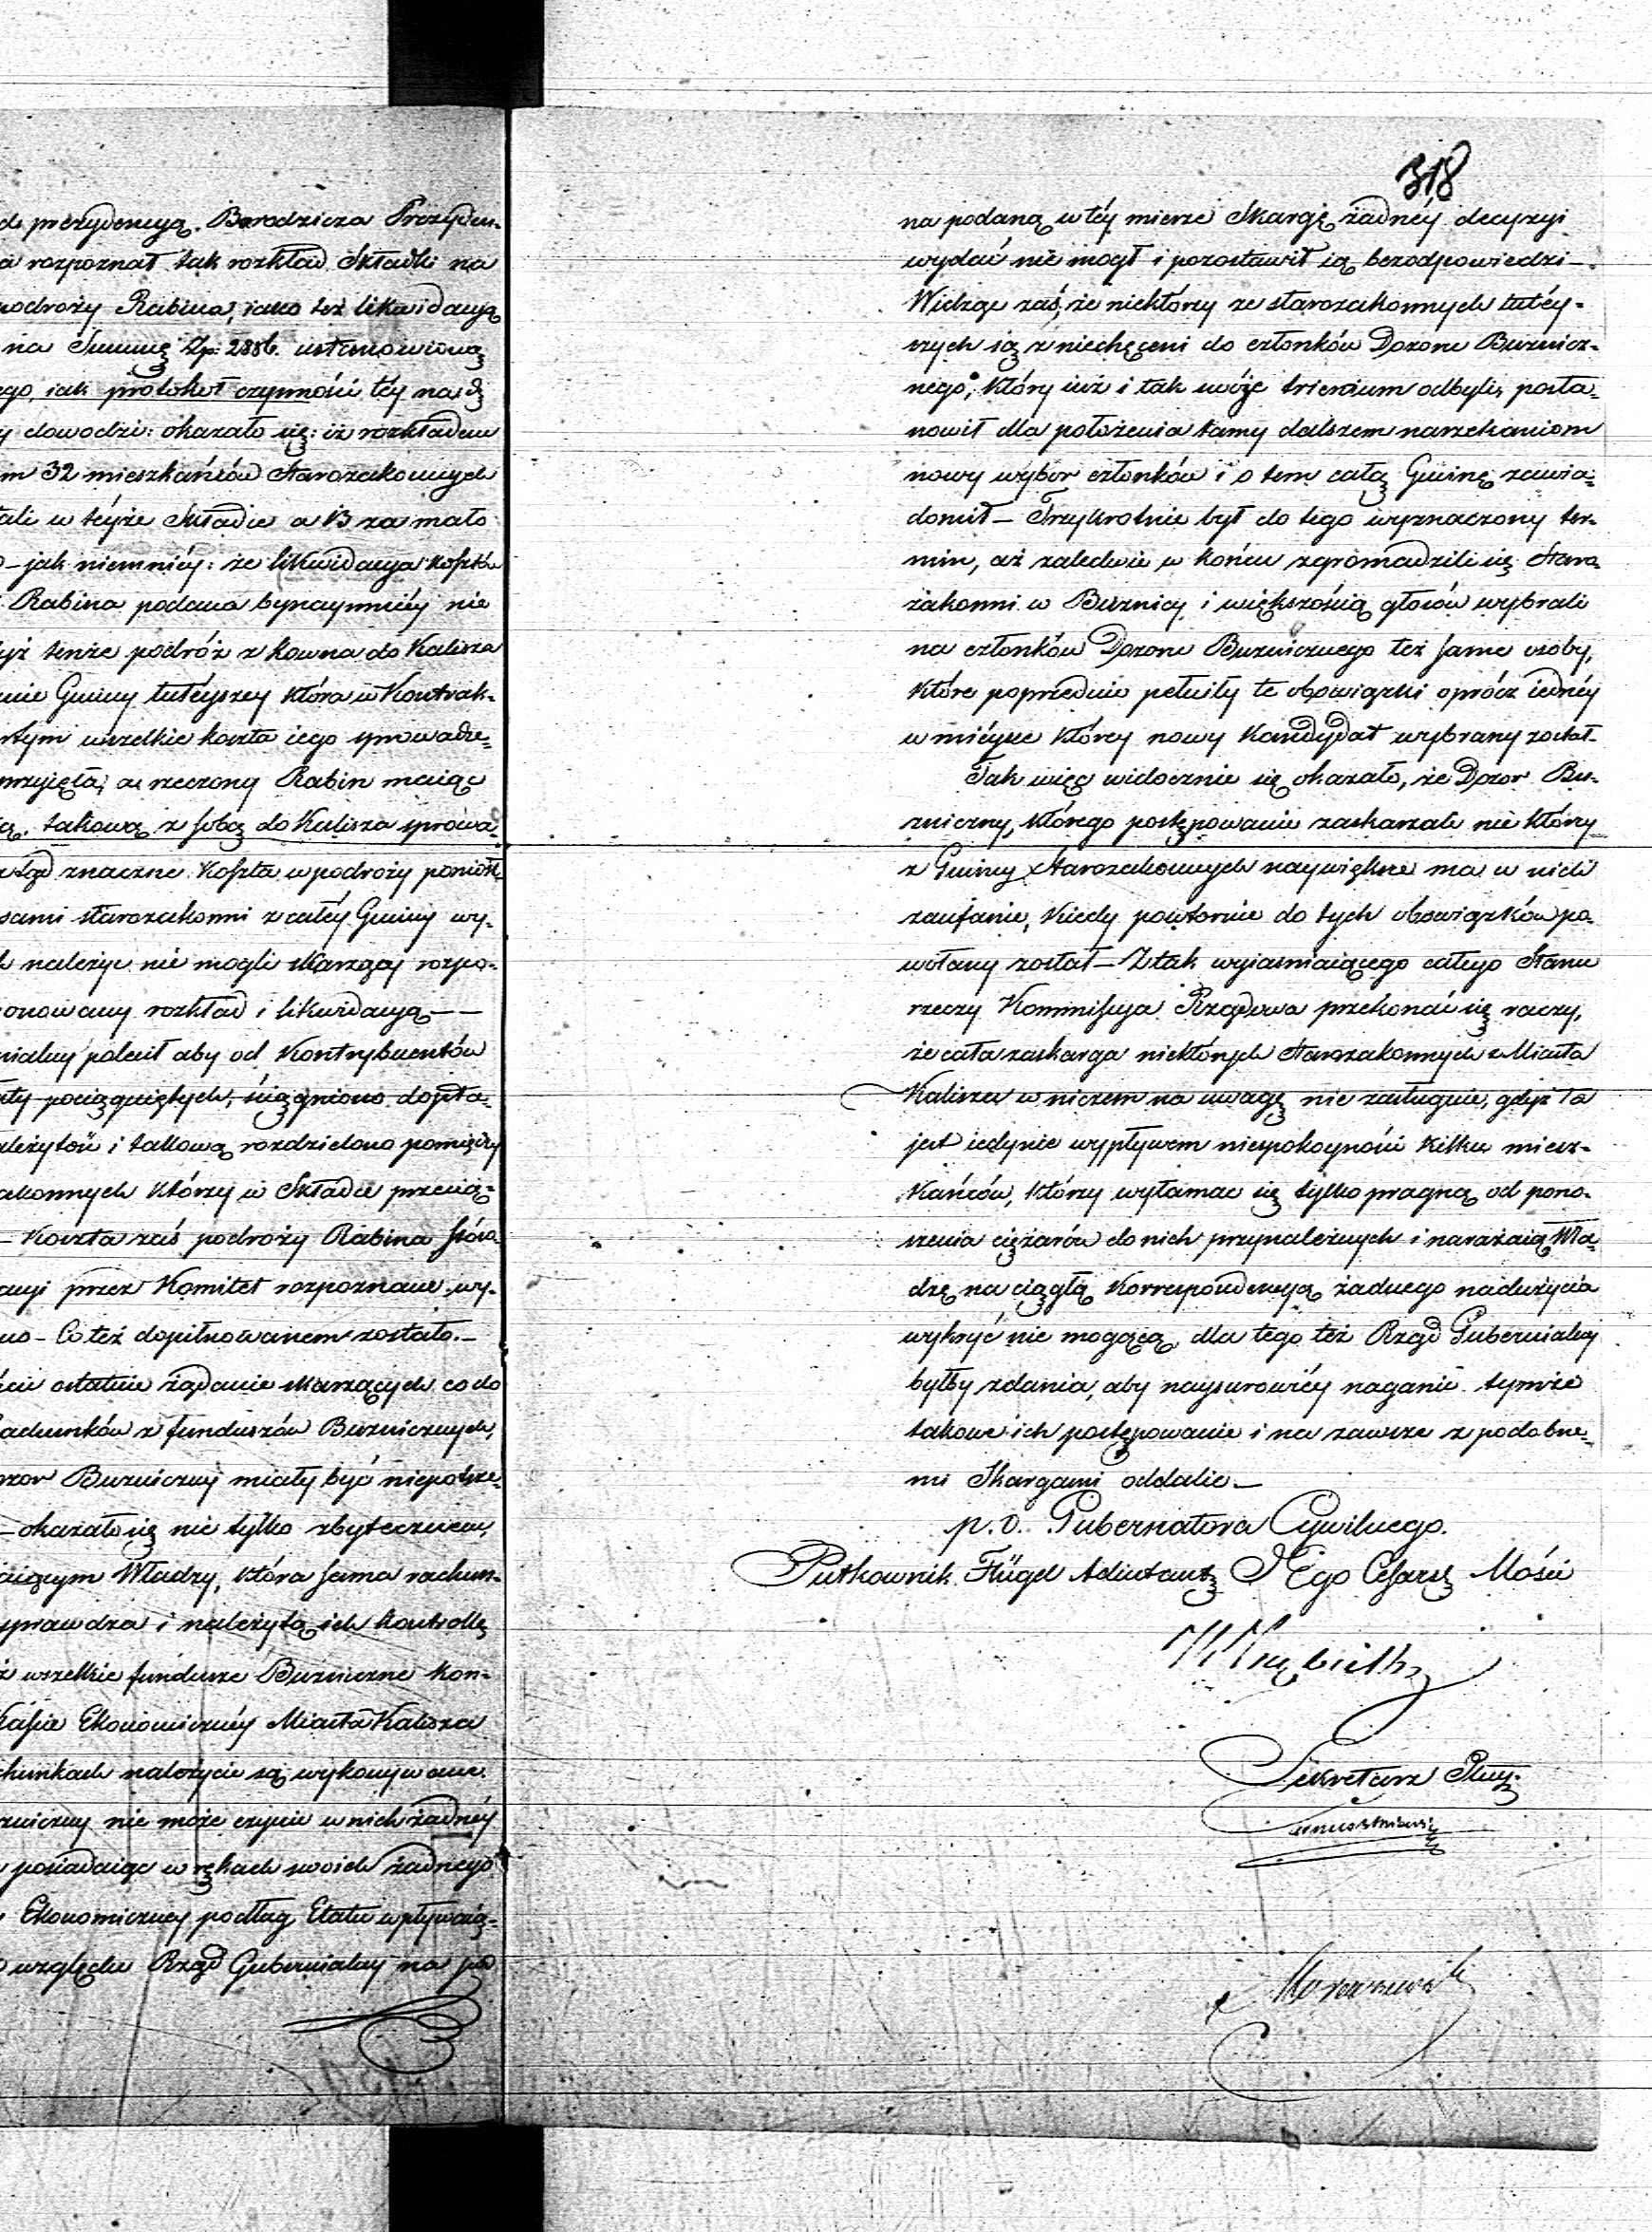 d prezydencyą Borodzicza Prezyden-
a rozpoznał tak rozkład Składki na
podroży Rabina, iako też likwidacyą
na Summę Zp: 2886. ustanowioną
ego, iak protokół czynności téy na d
y dowodzi: okazało się: iż rozkładem
m 32 mieszkańców Starozakonnych
ali w téyże Składce a 13 za mało
– jak niemniéy: że likwidacya kosztów
Rabina podana bynaymniéy nie
yż tenże podróż z Kowna do Kalisza
nie Gminy tutéyszey która w Kontrak-
rtym wszelkie koszta iego sprowadze-
przyięła, a rzeczony Rabin maiąc
ą. takową z sobą do Kalisza sprowa-
ztąd znaczne Koszta w podroży poniosł
sami starozakonni z całéy Gminy wy-
h należyc nie mogli skarzący rozpo-
onowany rozkład i likwidacyą – –
nialny polecił aby od Kontrybuentów
ały pociągniętych, ściągniono dopła-
ależytoś i takową rozdzielono pomiędzy
akonnych którzy w Składce przecią-
– Koszta zaś podroży Rabina stóso-
acyi przez Komitet rozpoznane wy-
no – Co też dopilnowanem zostało. –
cie ostatnie żądanie skarzących co do
achunków z funduszów Buzniczych,
ozor Buzniczny miały być niepotrze-
– okazało się nie tylko zbytecznem,
aiącym Władzy, która sama rachun-
sprawdza i należytą ich kontrollę
ż wszelkie fundusze Buzniczne kon-
Kassie Ekonomicznéy Miasta Kalisza
chunkach należycie są wykonywane.
zniczny nie może czynić w nich żadnéy
posiadaiąc w rękach swoich żadnego
Ekonomiczney podług Etatu wpływaią-
względu Rząd Gubernialny na po
318
na podaną w téy mierze Skargę żadnéy decyzyi
wydać nie mogł i pozostawił ią bezodpowiedzi –
Widząc zaś, że niektórzy ze starozakonnych tutéy-
szych są zniechęceni do członków Dozoru Buznicz-
nego, który iuż i tak swoje triennium odbyli, posta-
nowił dla położenia tamy dalszem narzekaniom
nowy wybor członków i o tem całą Gminę zawia-
domił – Trzykrotnie był do tego wyznaczony ter-
min, aż zaledwie w końcu zgromadzili się Staro-
zakonni w Buznicy i większością głosów wybrali
na członków Dozoru Buznicznego też same osoby,
które poprzednio pełniły te obowiązki oprócz iednéy
w miéysce któréy nowy kandydat wybrany został –
Tak więc widocznie się okazało, że Dozor Bu-
zniczny, którego postępowanie zaskarzali niektórzy
z Gminy Starozakonnych naywiększe ma w nich
zaufanie, kiedy powtornie do tych obowiązków po-
wołany został – Z tak wyiasniaiącego całego Stanu
rzeczy Kommissya Rządowa przekonać się raczy,
że cała zaskarga niektórych Starozakonnych z Miasta
Kalisza w niczem na uwagę nie zasługuie, gdyż ta
jest iedynie wypływem niespokoyności kilku miesz-
kańców, którzy wyłamac się tylko pragną od pono-
szenia ciężarów do nich przynależnych i narażaią Wła-
dzę na ciągłą korrespondencyą żadnego nadużycia
wykryć nie mogącą, dla tego też Rząd Gubernialny
byłby zdania, aby naysurowiéy naganić tymże
takowe ich postępowanie i na zawsze z podobne-
mi Skargami oddalic –
p. o. Gubernatora Cywilnego.
Pułkownik Flügel Adiutant JEgo Cesarsk Mości
Sekretarz